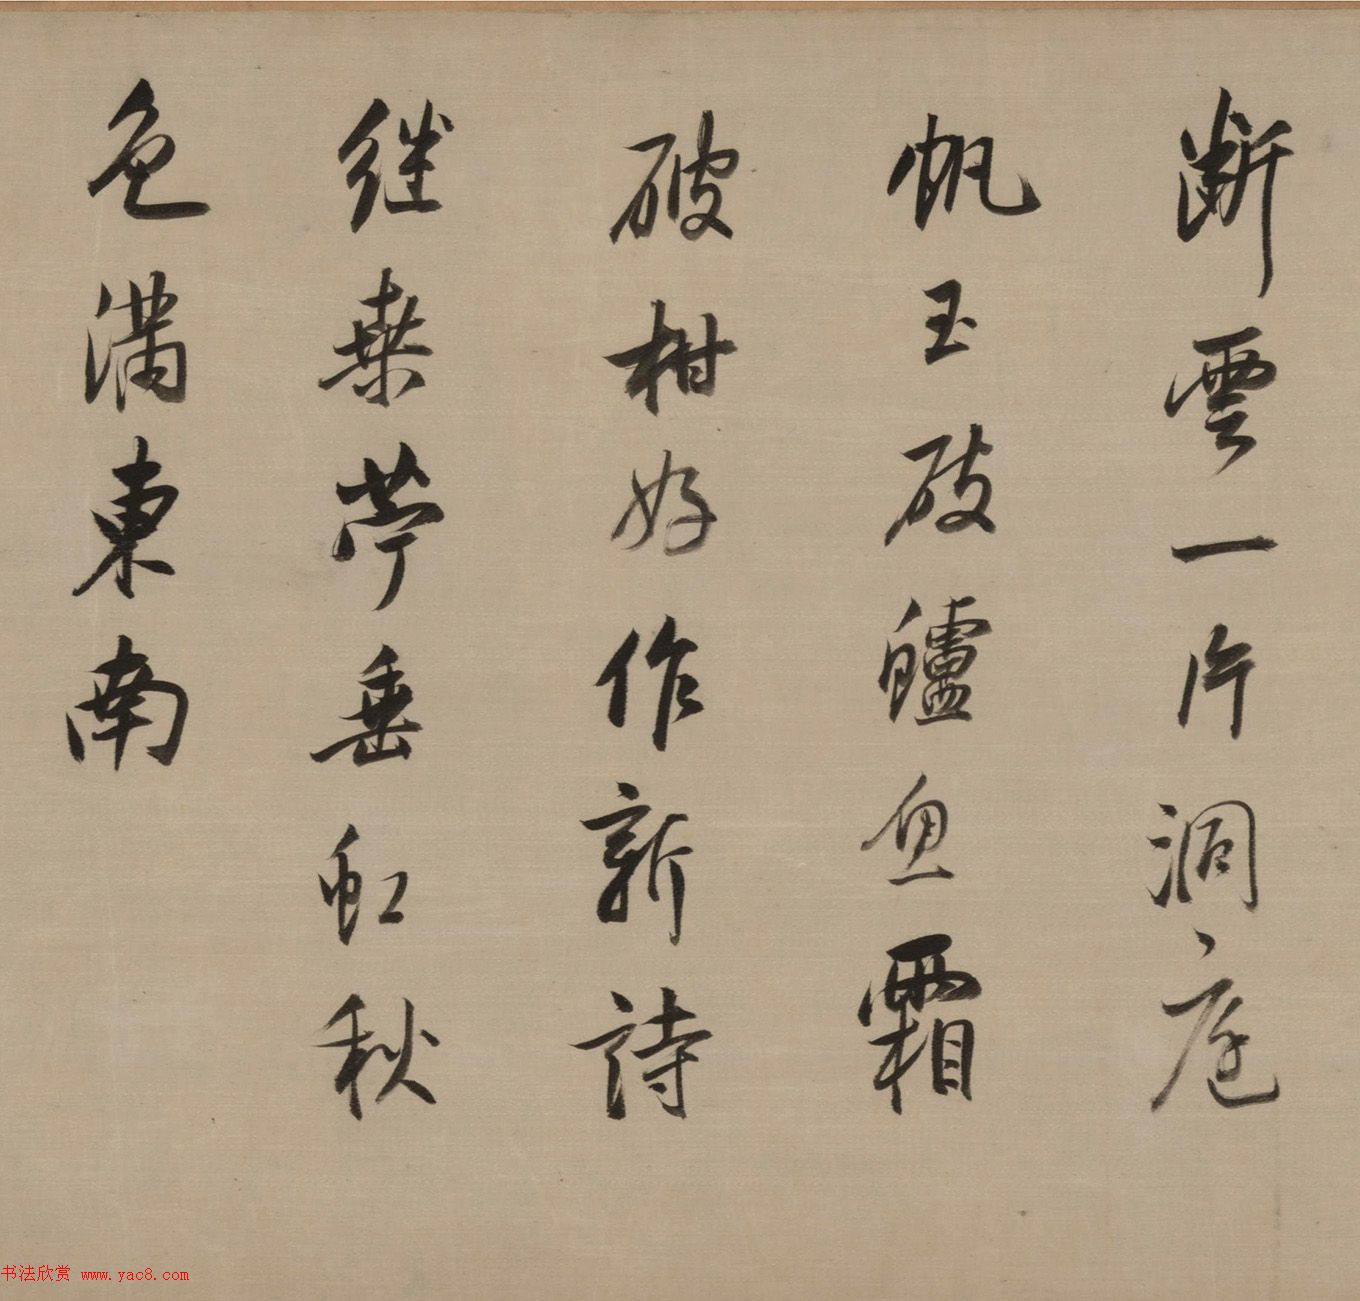 断雲一片洞庭
帆玉破鱸魚霜
破柑好作新詩
继桒苧垂虹秋
色滿東南
书法欣赏 www.yac8.com